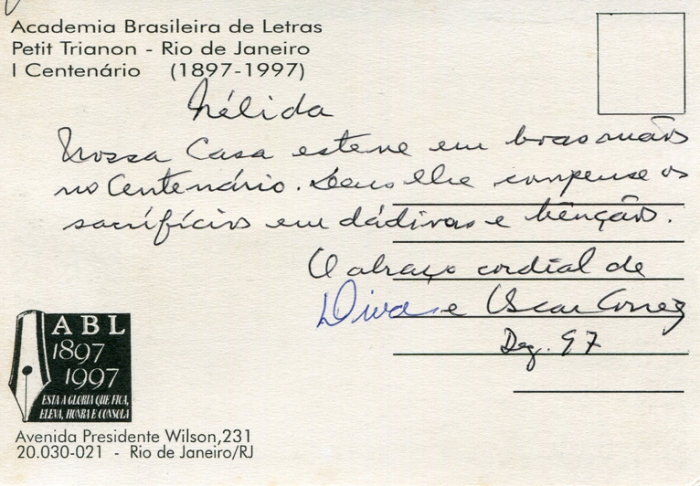 Academia Brasileira de Letras
Petit Trianon - Rio de Janeiro
I Centenário (1897-1997)
Nélida
Nossa Casa esteve em boas mãos
no Centenário. Deus lhe compense os
sacrifícios em dádivas e bênçãos.
O abraço cordial de
Diva e Oscar Correa
Dez. 97
ABL
1897
1997
ESTA A GLORIA QUE FICA,
ELEVA, HONRA E CONSOLA
Avenida Presidente Wilson,231
20.030-021 - Rio de Janeiro/RJ